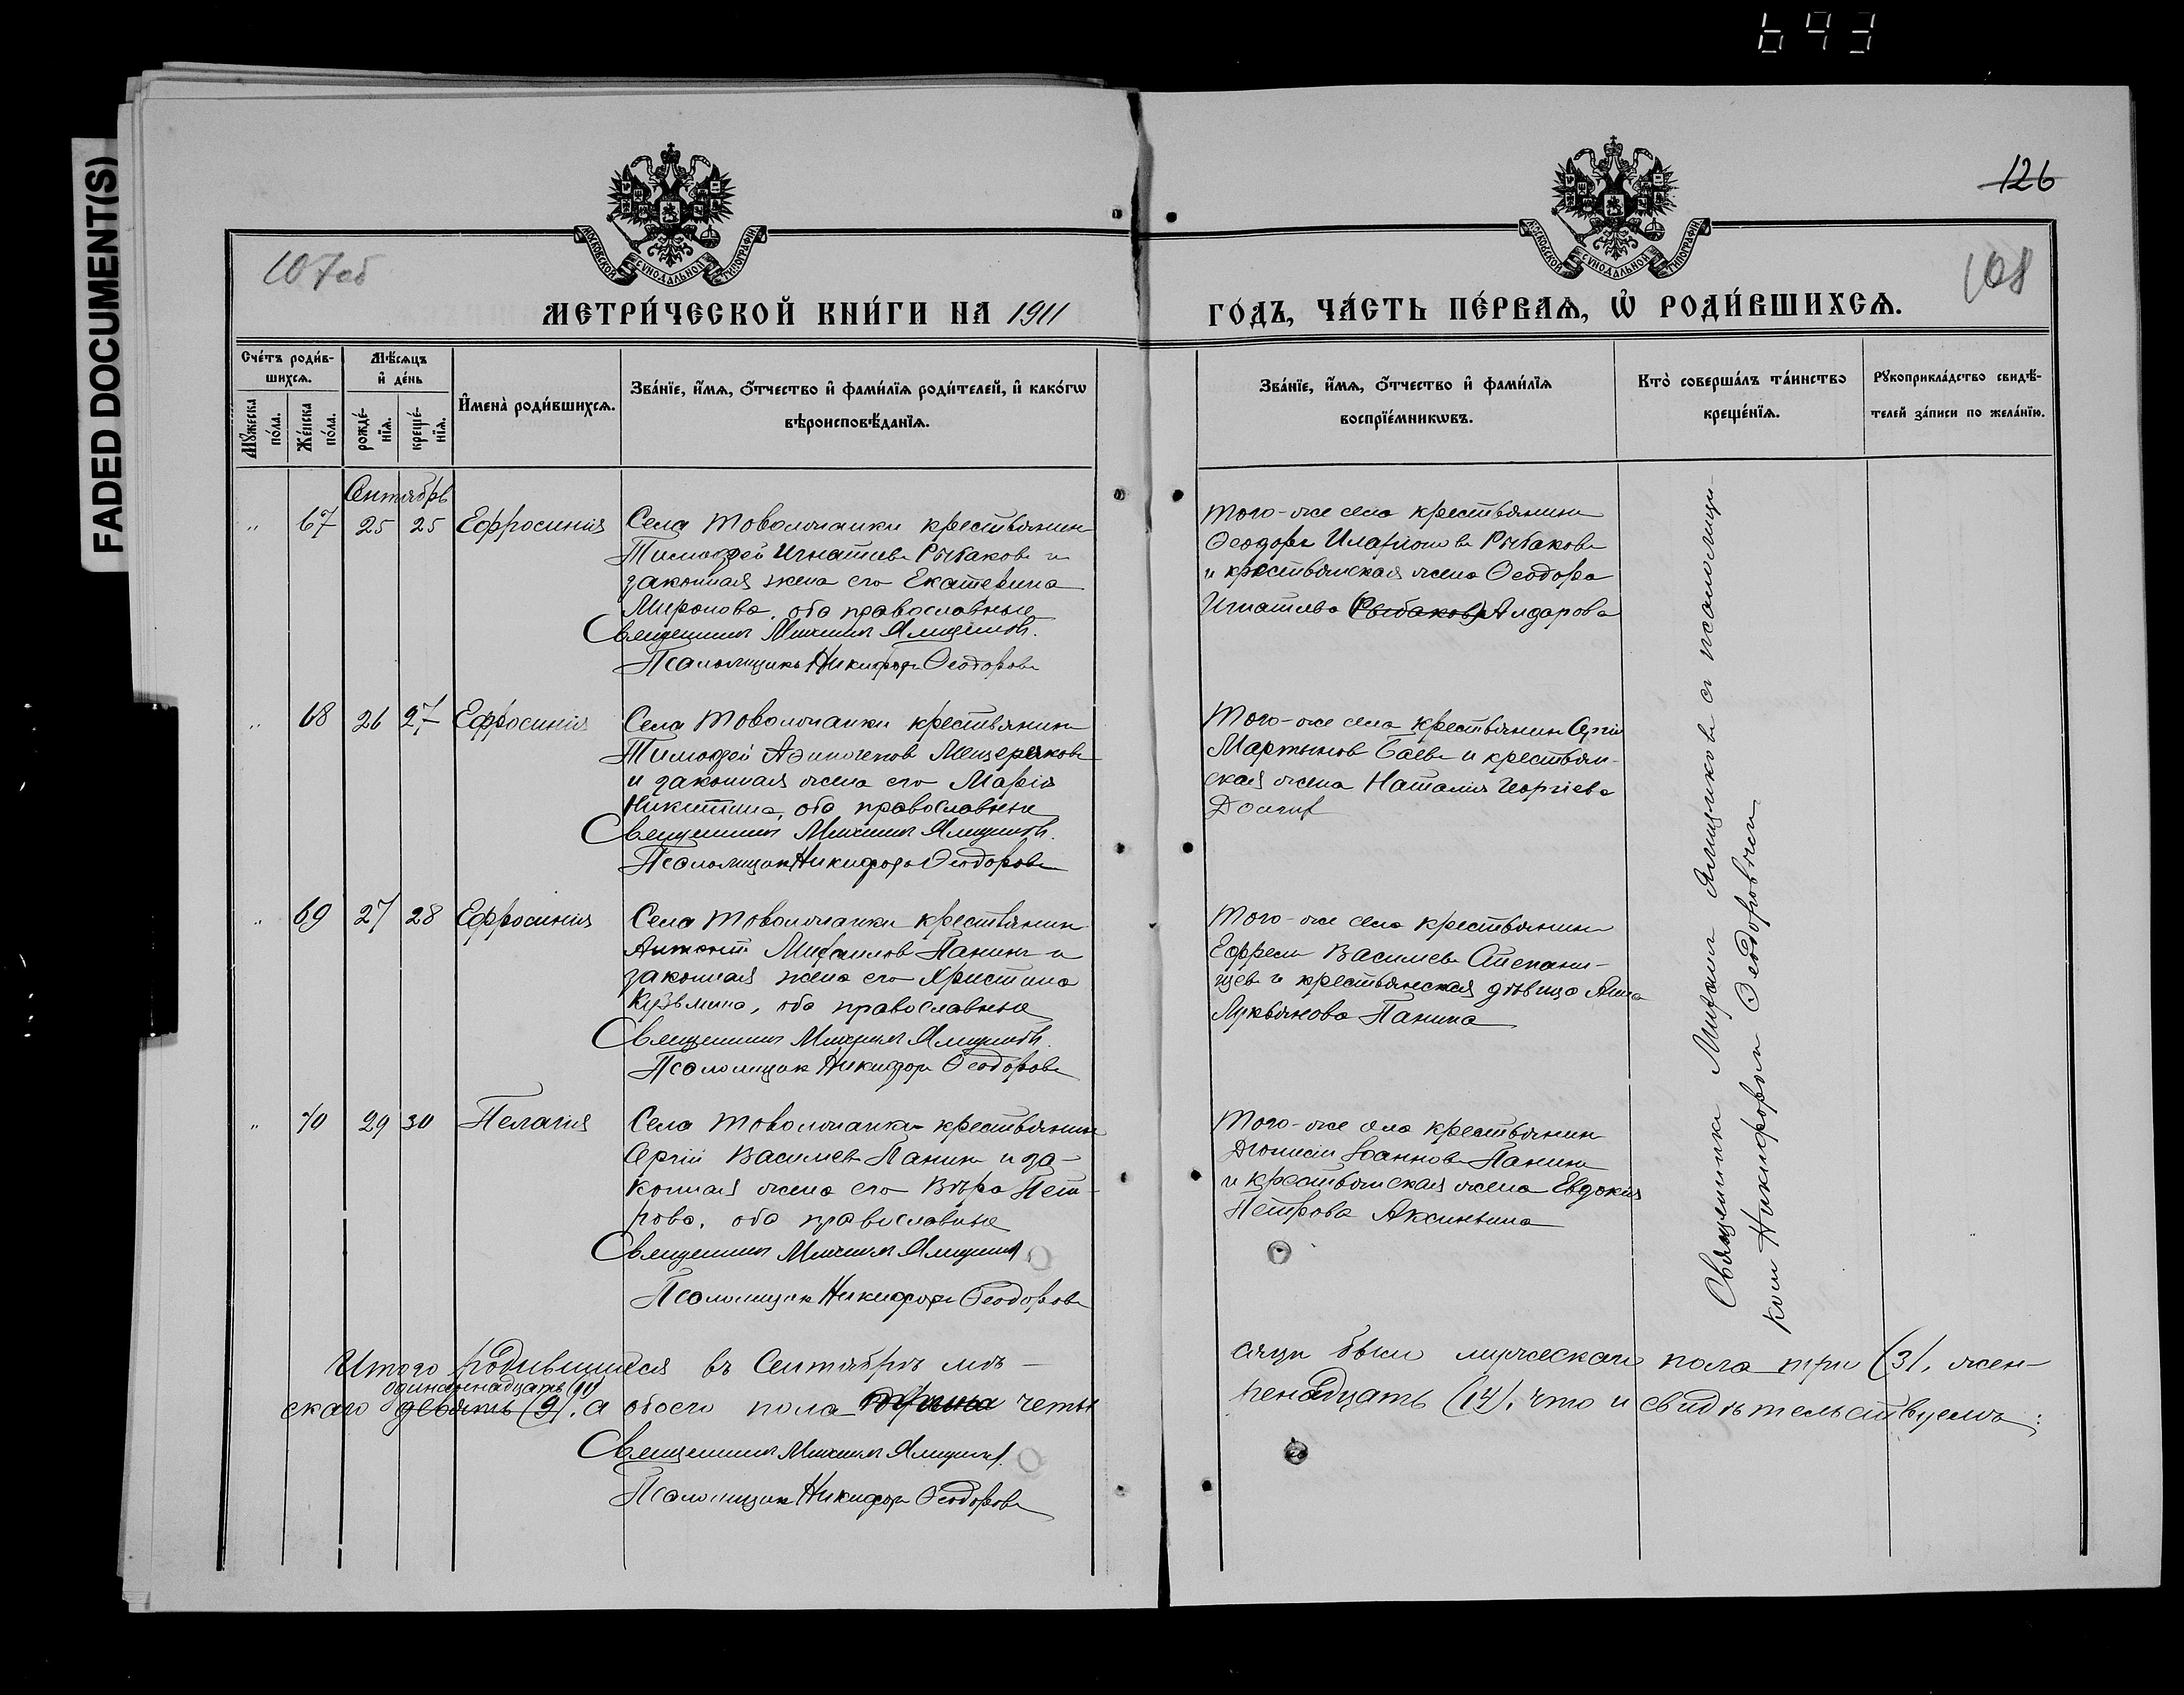 643
FADED DOCUMENT(S)
126
107об
108
МОСКОВСКОЙ СѴНОДАЛЬНОЙ ТИПОГРАФІИ
МОСКОВСКОЙ СѴНОДАЛЬНОЙ ТИПОГРАФІИ
МЕТРИ́ЧЕСКОЙ КНИ́ГИ НА 1911
ГО́ДЪ, ЧА́СТЬ ПЕ́РВАѦ, Ѡ҆ РОДИ́ВШИХСѦ.
Сче́тъ роди́в-
шихсѧ.
Мѹ́жеска по́ла.
Же́нска по́ла.
Мѣ́сѧцъ и҆ де́нь
рожде́-
нїѧ.
креще́-
нїѧ.
И҆мена̀ роди́вшихсѧ.
Зва́нїе, и҆́мѧ, ѻ҆́тчество и҆ фами́лїѧ роди́телей, и҆ како́гѡ
вѣроисповѣ́данїѧ.
Зва́нїе, и҆́мѧ, ѻ҆́тчество и҆ фами́лїѧ
воспрїе́мникѡвъ.
Кто̀ соверша́лъ та́инство
креще́нїѧ.
Рѹкоприкла́дство свидѣ́-
телей за́писи по жела́нїю.
Сентябрь
" 67 25 25 Ефросинія
Села Товолжанки крестьянинъ
Тимоѳей Игнатіевъ Рыбаковъ и
законная жена его Екатерина
Миронова, оба православные
Священникъ Михаилъ Ямщиковъ.
Псаломщикъ Никифоръ Ѳеодоровъ
Того-же села крестьянинъ
Ѳеодоръ Иларіоновъ Рыбаковъ
и крестьянская жена Ѳеодора
Игнатіева (Рыбакова) Алдарова
" 68 26 27 Ефросинія
Села Товолжанки крестьянинъ
Тимоѳей Мещеряковъ
и законная жена его Марія
Никитина, оба православные
Священникъ Михаилъ Ямщиковъ.
Псаломщикъ Никифоръ Ѳеодоровъ
Того-же села крестьянинъ Сергій
Мартыновъ Баевъ и крестьян-
ская жена Наталія Георгіева
" 69 27 28 Ефросинія
Села Товолжанки крестьянинъ
Михаиловъ Панинъ и
законная жена его Христина
Кузьмина, оба православные
Священникъ Михаилъ Ямщиковъ.
Псаломщикъ Никифоръ Ѳеодоровъ
Того-же села крестьянинъ
Ефремъ Василіевъ
и крестьянская дѣвица Анна
Лукьянова Панина
" 70 29 30 Пелагія
Села Товолжанки крестьянинъ
Сергій Василіевъ Панинъ и за-
конная жена его Вѣра Пет-
рова, оба православные
Священникъ Михаилъ Ямщиковъ
Псаломщикъ Никифоръ Ѳеодоровъ
Того-же села крестьянинъ
Діонисій Іоанновъ Панинъ
и крестьянская жена Евдокія
Петрова Аксиньина
Священникъ Михаилъ Ямщиковъ съ псаломщи-
комъ Никифоромъ Ѳеодоровымъ
Итого родившихся въ Сентябрѣ мѣ-
сяцѣ было мужескаго пола три (3), жен-
одинаннадцать (11)
скаго девять (9), а обоего пола четы
ренадцать (14), что и свидѣтельствуемъ:
Священникъ Михаилъ Ямщиковъ
Псаломщикъ Никифоръ Ѳеодоровъ